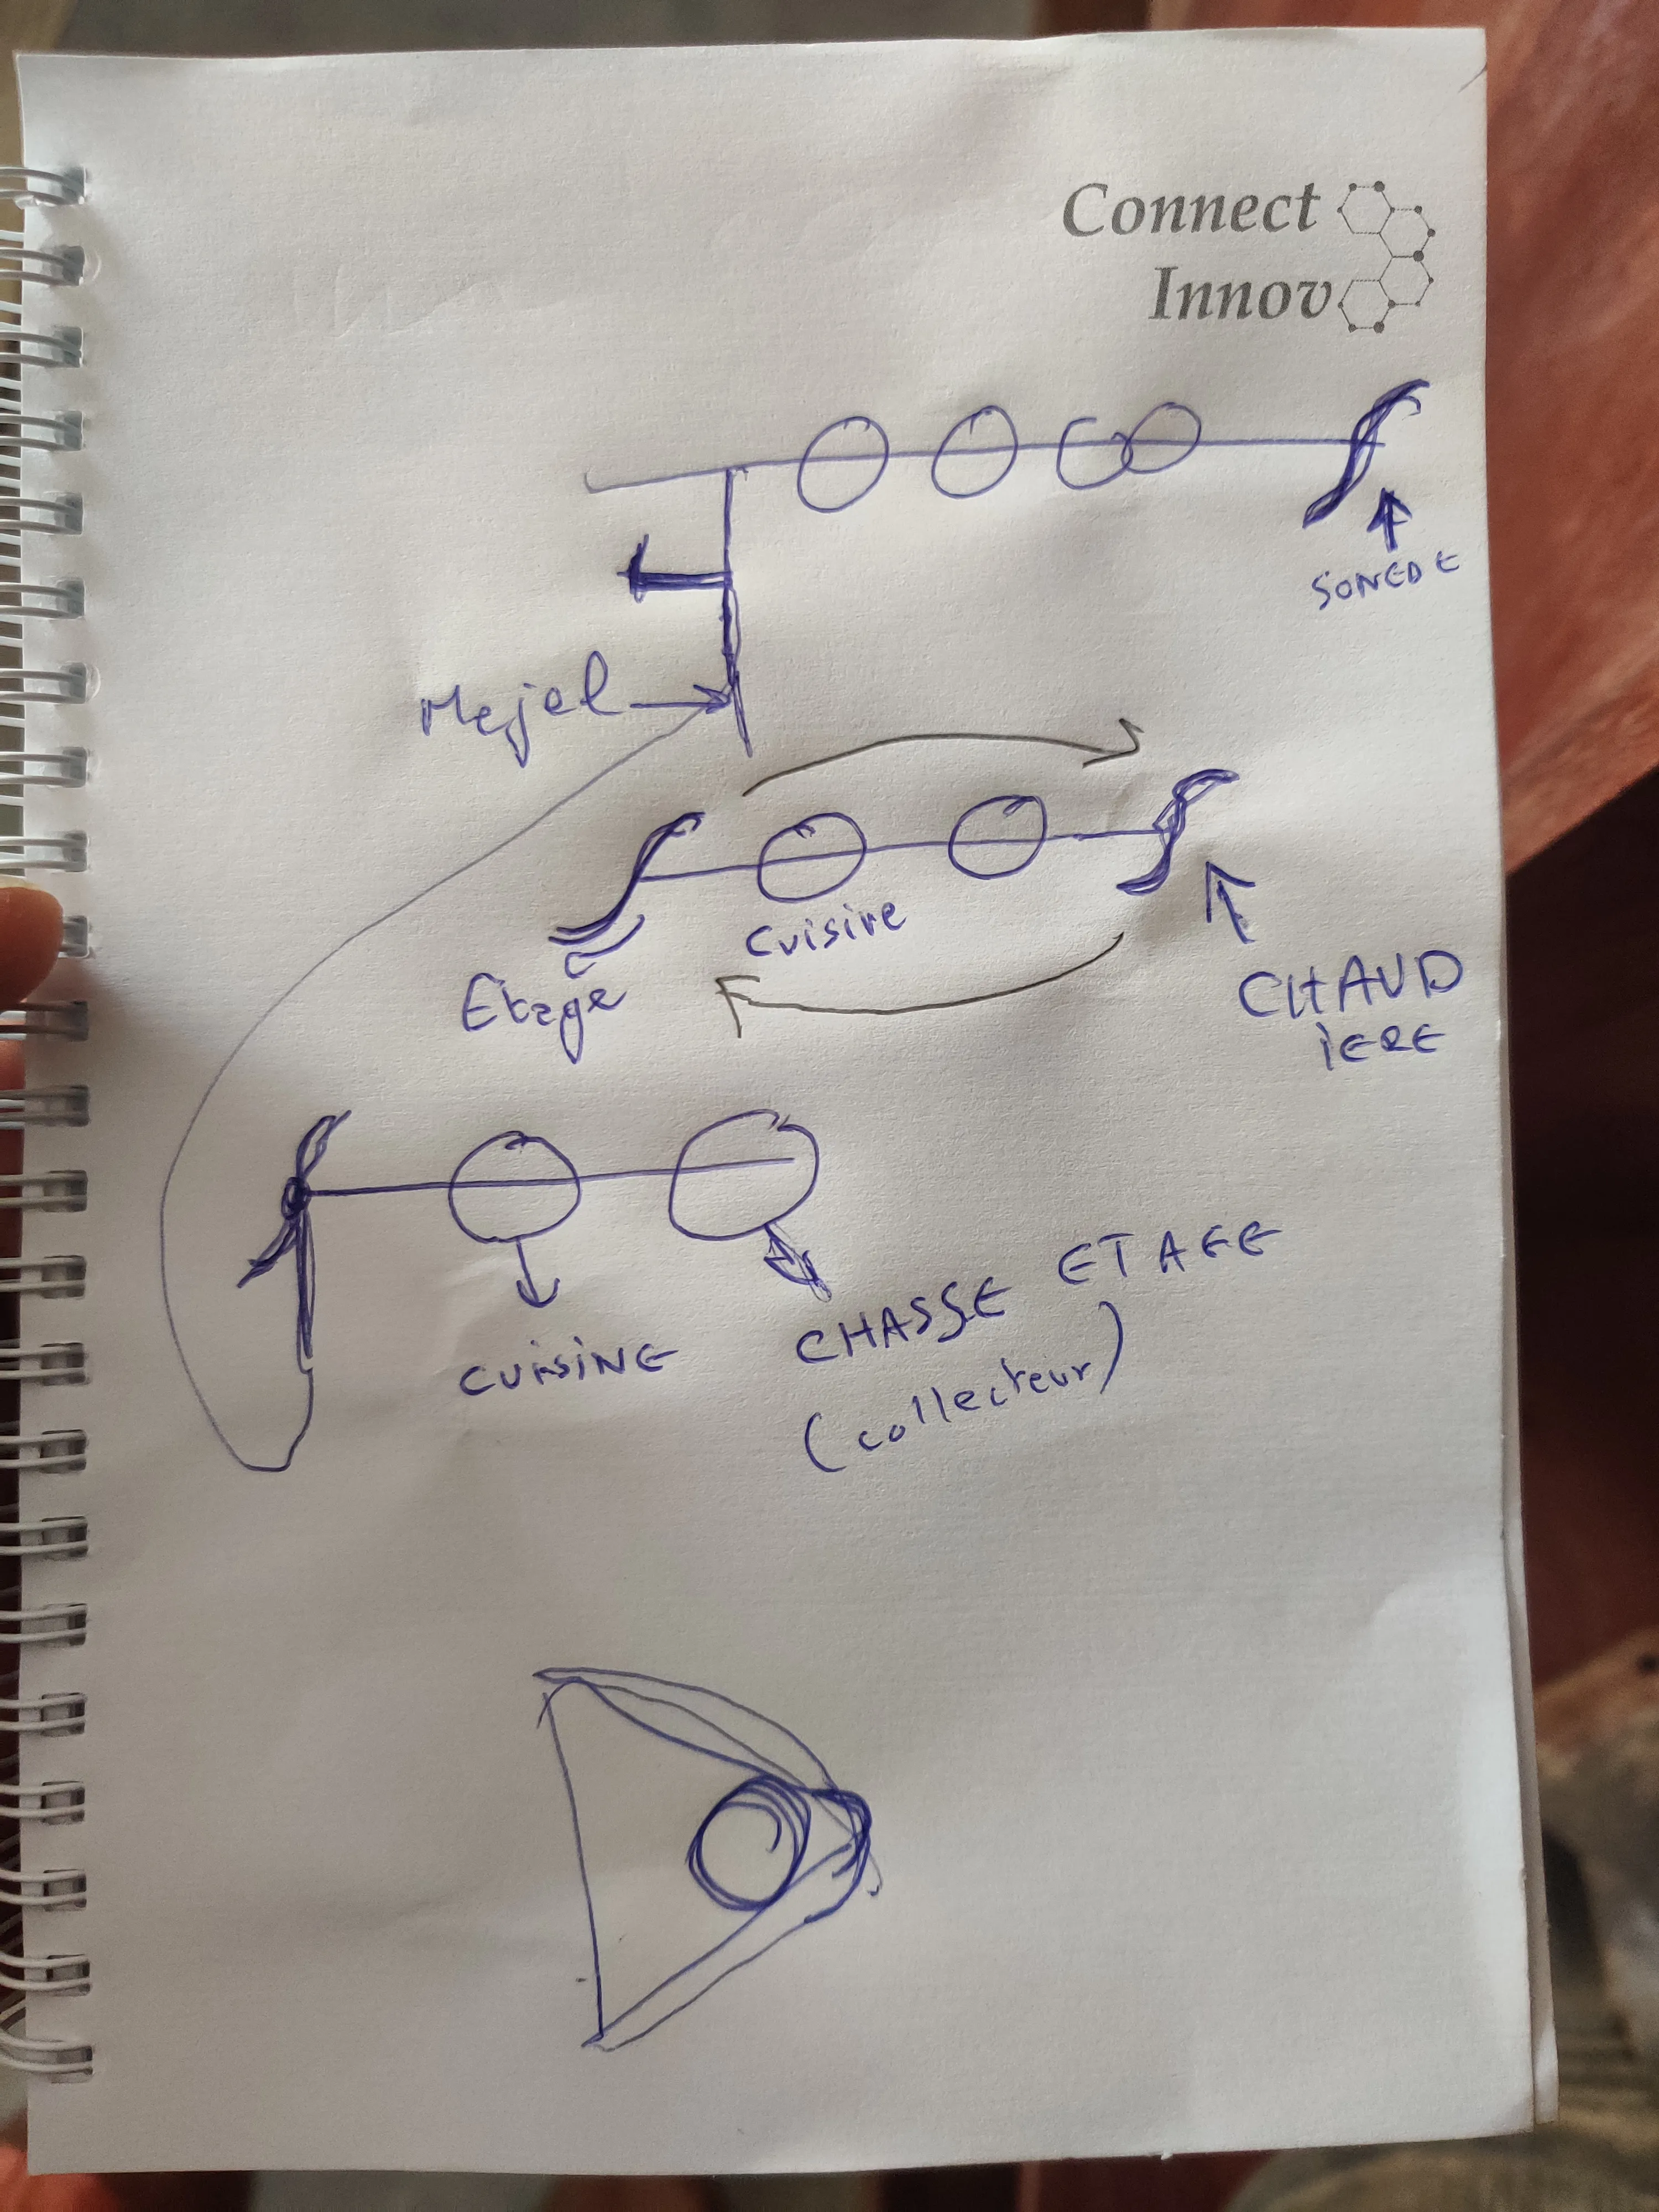 Connect
Innov
SONEDE
Mejel
Cuisine
Etage
CHAUD
iERE
CUiSiNE
CHASSE ETAGE
(collecteur)